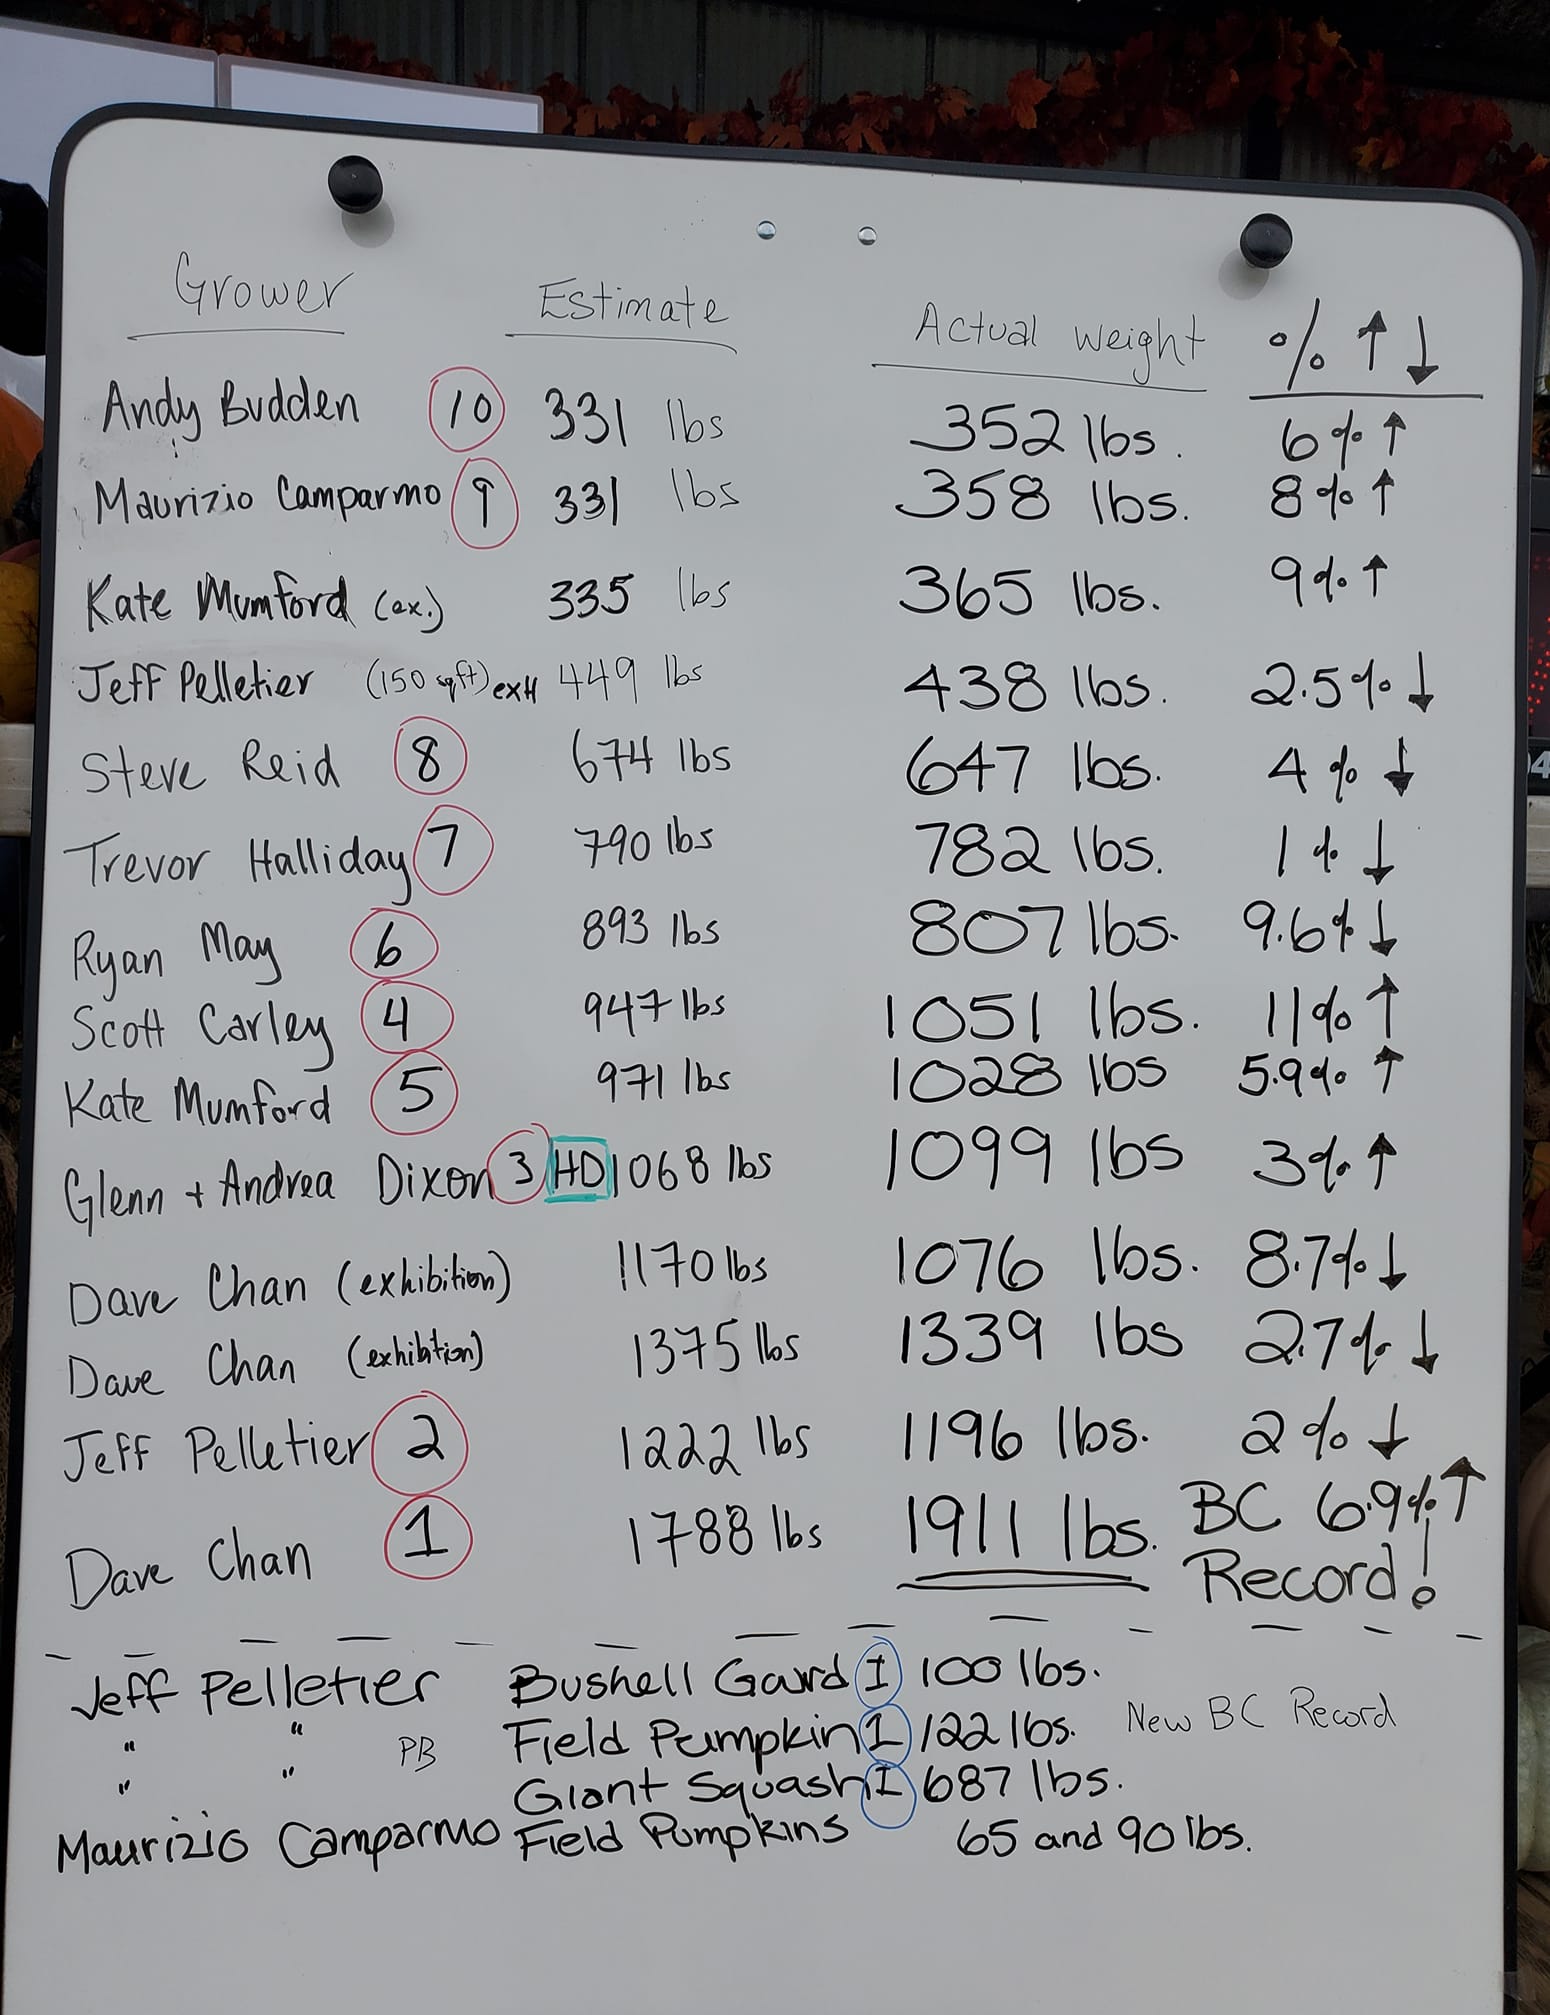 Grower Estimate Actual Weight % ↑ ↓
Andy Budden 10 331 lbs 352 lbs. 6% ↑
Maurizio Camparmo 9 331 lbs 358 lbs. 8% ↑
Kate Mumford (ex.) 335 lbs 365 lbs. 9% ↑
Jeff Pelletier (150 sqft) exH 449 lbs 438 lbs. 2.5% ↓
Steve Reid 8 674 lbs 647 lbs. 4% ↓
Trevor Halliday 7 790 lbs 782 lbs. 1% ↓
Ryan May 6 893 lbs 807 lbs. 9.6% ↓
Scott Carley 4 947 lbs 1051 lbs. 11% ↑
Kate Mumford 5 971 lbs 1028 lbs 5.9% ↑
Glenn + Andrea Dixon 3 HD 1068 lbs 1099 lbs 3% ↑
Dave Chan (exhibition) 1170 lbs 1076 lbs. 8.7% ↓
Dave Chan (exhibition) 1375 lbs 1339 lbs 2.7% ↓
Jeff Pelletier 2 1222 lbs 1196 lbs. 2% ↓
Dave Chan 1 1788 lbs 1911 lbs. BC 6.9% ↑
Record!
Jeff Pelletier Bushell Gourd 1 100 lbs.
" " PB Field Pumpkin 1 122 lbs. New BC Record
" " Giant Squash 1 687 lbs.
Maurizio Camparmo Field Pumpkins 65 and 90 lbs.